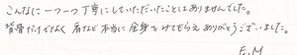 こんなに一つ一つ丁寧にしていただいたことはありませんでした。
背骨だけでなく肩など本当に全身をみてもらえありがとうございました。
E.M